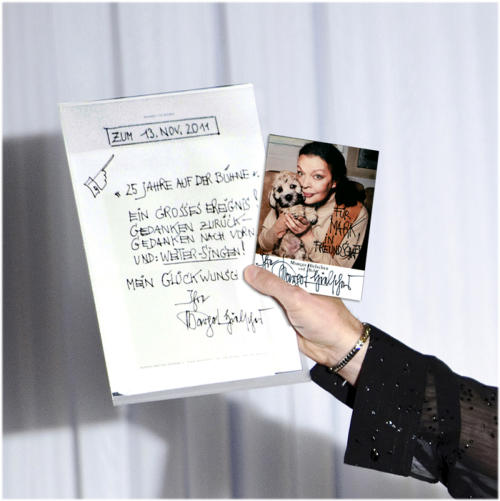 ZUM 13. NOV. 2011
"25 JAHRE AUF DER BÜHNE".
EIN GROSSES EREIGNIS!
GEDANKEN ZURÜCK –
GEDANKEN NACH VORN
UND: WEITER-SINGEN!
MEIN GLÜCKWUNSC
Ihre
Margot
FÜR
MARK
IN
FREUNDSCHAFT
Ihre
Margot